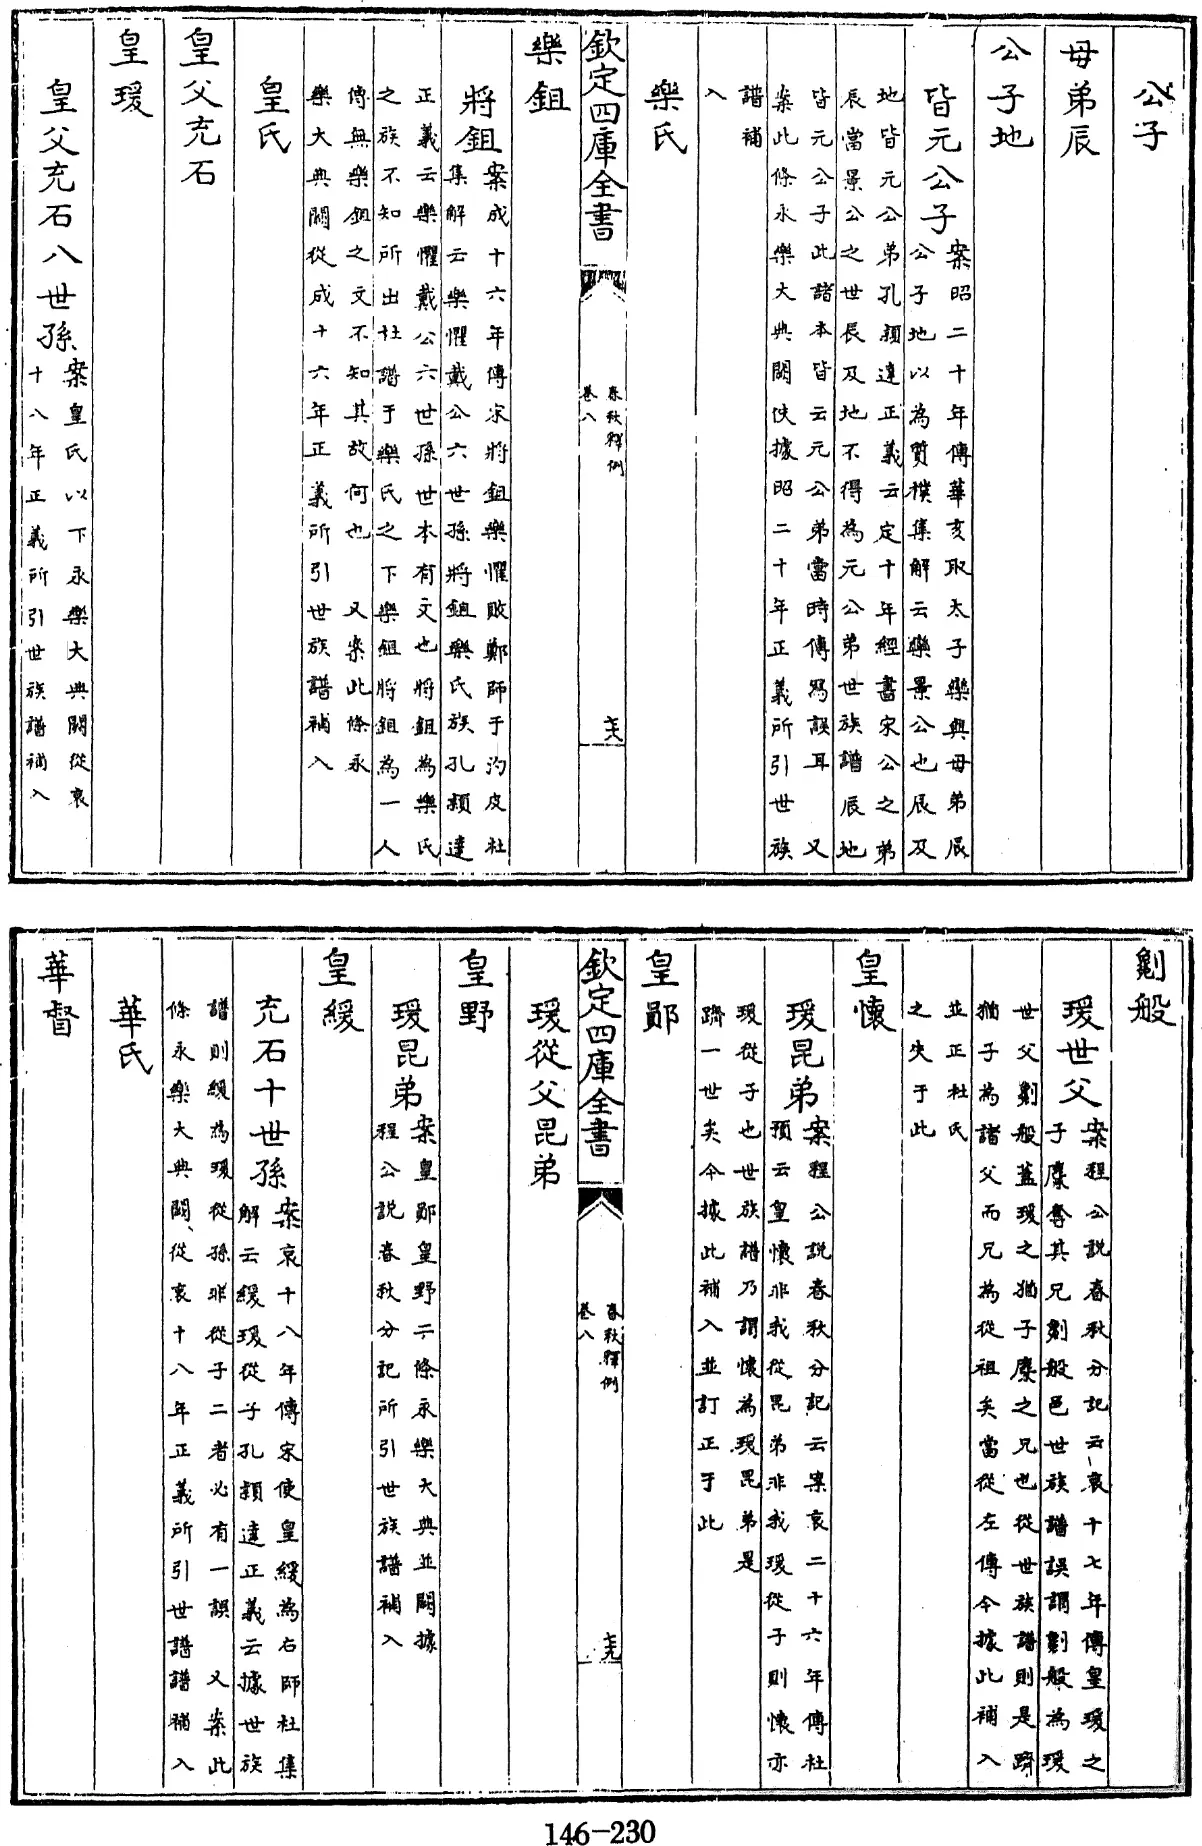 公子
母弟辰
公子地
皆元公子案昭二十年傳華亥取太子欒與母弟辰
公子地以為質樸集解云欒景公也辰及
地皆元公弟孔頴達正義云定十年經書宋公之弟
辰當景公之世辰及地不得為元公弟世族譜辰地
皆元公子此諸本皆云元公弟當時傳寫誤耳 又
案此條永樂大典闕佚據昭二十年正義所引世族
譜補
入
樂氏
欽定四庫全書
春秋釋例
卷八
樂鉏
將鉏案成十六年傳宋將鉏樂懼敗鄭師于汋皮杜
集解云樂懼戴公六世孫將鉏樂氏族孔頴達
正義云樂懼戴公六世孫世本有文也將鉏為樂氏
之族不知所出杜譜于樂氏之下樂鉏將鉏為一人
傳無樂鉏之文不知其故何也 又案此條永
樂大典闕從成十六年正義所引世族譜補入
皇氏
皇父充石
皇瑗
皇父充石八世孫案皇氏以下永樂大典闕從哀
十八年正義所引世族譜補入
劖般
瑗世父案程公説春秋分記云哀十七年傳皇瑗之
子麇奪其兄劖般邑世族譜誤謂劖般為瑗
世父劖般蓋瑗之猶子麇之兄也從世族譜則是躋
猶子為諸父而兄為從祖矣當從左傳今據此補入
並正杜氏
之失于此
皇懷
瑗昆弟案程公説春秋分記云案哀二十六年傳杜
預云皇懷非我從昆弟非我瑗從子則懷亦
瑗從子也世族譜乃謂懷為瑗昆弟是
躋一世矣今據此補入並訂正于此
皇鄖
欽定四庫全書
春秋釋例
卷八
瑗從父昆弟
皇野
瑗昆弟案皇鄖皇野二條永樂大典並闕據
程公説春秋分記所引世族譜補入
皇緩
充石十世孫案哀十八年傳宋使皇緩為右師杜集
解云緩瑗從子孔頴達正義云據世族
譜則緩為瑗從孫非從子二者必有一誤 又案此
條永樂大典闕從哀十八年正義所引世譜譜補入
華氏
華督
146-230